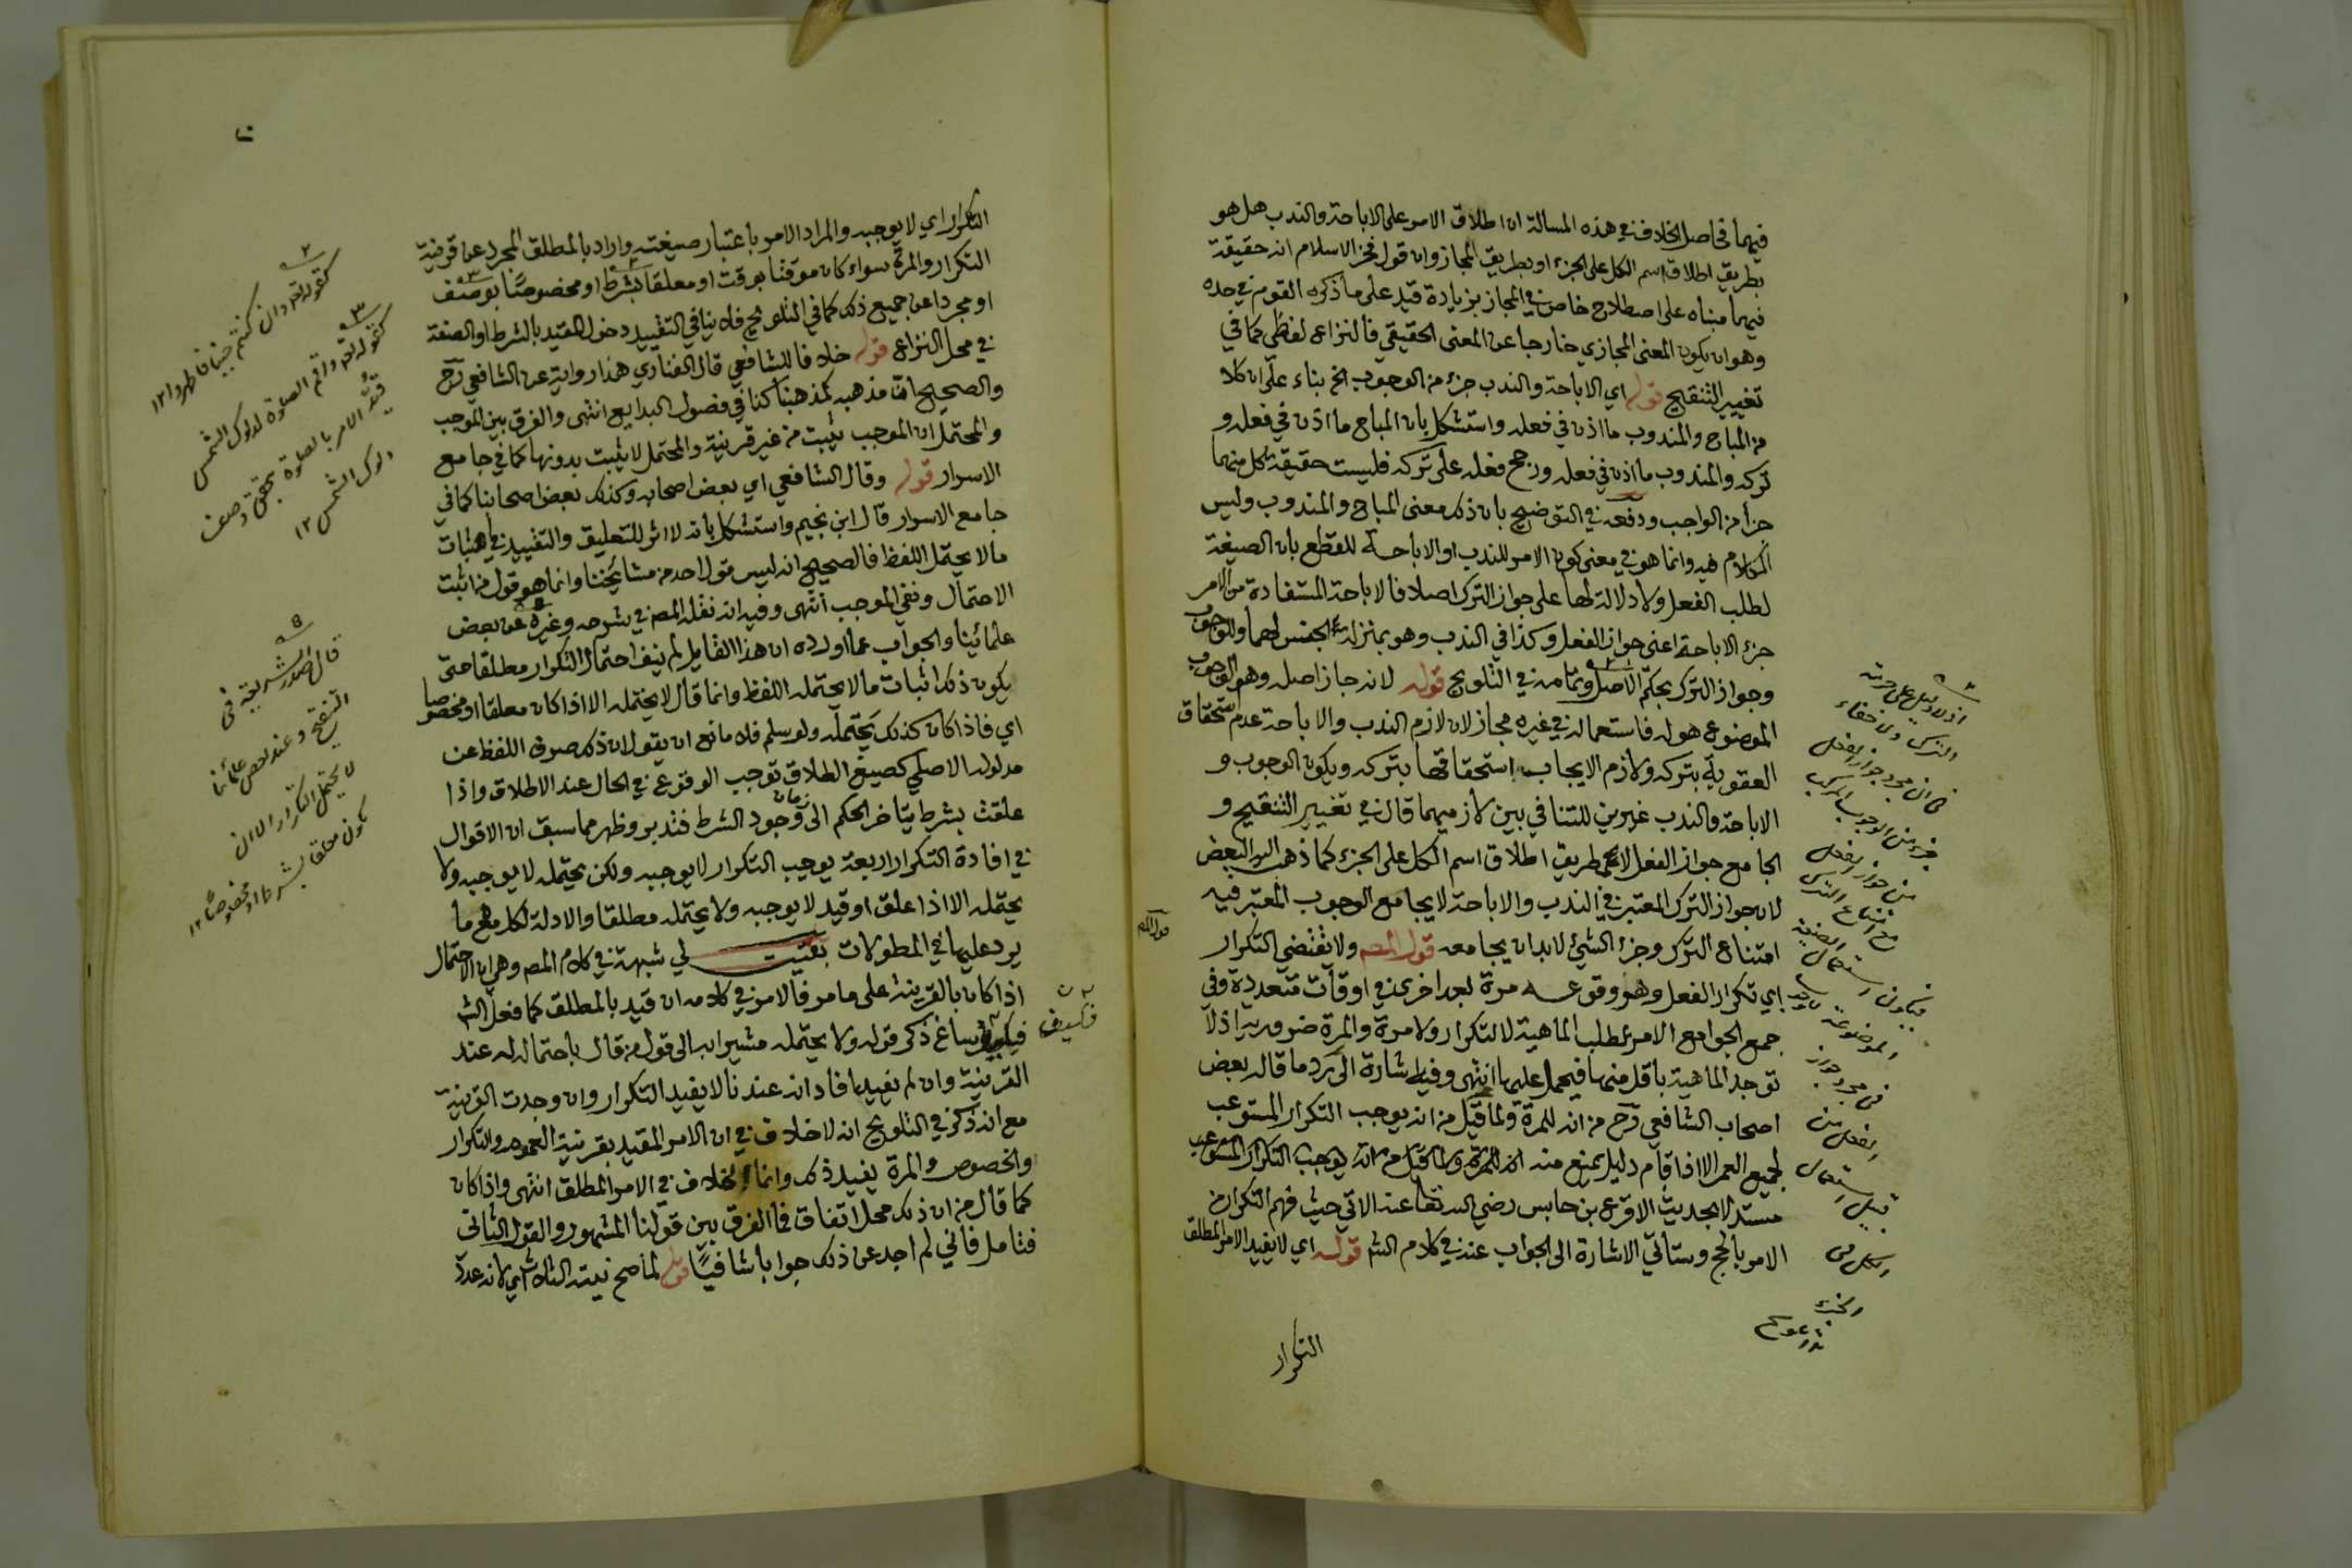 فيهما فى اصل الخلاف فى هذه المسالة ان اطلاق الامر على الاباحة والندب هل هو
بطريق اطلاق اسم الكل على الجزء او بطريق المجاز وان قول فخر الاسلام انه حقيقة
فيهما مبناه على اصطلاح خاص في المجاز بزيادة قيد على ما ذكره القوم في حده
وهو ان يكون المعنى المجازي خارجا عن المعنى الحقيقي فالنزاع لفظي كما في
تغيير التنقيح قوله اي الاباحة والندب جزء من الوجوب الخ بناء على ان كلا
من المباح والمندوب ما اذن في فعله واستشكل بان المباح ما اذن في فعله و
تركه والمندوب ما اذن في فعله ورجح فعله على تركه فليست حقيقة كل منهما
جزأ من الواجب ودفعه في التوضيح بان ذلك معنى المباح والمندوب وليس
الكلام فيه وانما هو في معنى كون الامر للندب او الاباحة للقطع بان الصيغة
لطلب الفعل ولا دلالة لها على جواز الترك اصلا فالاباحة المستفادة من الامر
جزء الاباحة اعنى جواز الفعل وكذا في الندب وهو بمنزلة الجنس لهما وللوجوب
وجواز الترك بحكم الاصل وتمامه في التلويح قوله لانه جاز اصله وهو الوجوب
الموضوع هو له فاستعماله في غيره مجاز لان لازم الندب والاباحة عدم استحقاق
العقوبة بتركه ولازم الايجاب استحقاقها بتركه ويكون الوجوب و
الاباحة والندب غيرين للتنافي بين لازميهما قال في تغيير التنقيح و
الجامع جواز الفعل لا عم طريق اطلاق اسم الكل على الجزء كما ذهب اليه البعض
لان جواز الترك المعتبر في الندب والاباحة لا يجامع الوجوب المعتبر فيه
امتناع الترك وجزء الشئ لا بد ان يجامعه قول المصـ ولا تقتضي التكرار
اي تكرار الفعل وهو وقوعه مرة بعد اخرى في اوقات متعددة وفي
جمع الجوامع الامر لطلب الماهية لا لتكرار ولا مرة والمرة ضرورية اذ لا
توجد الماهية باقل منها فيحمل عليها انتهى وفيه اشارة الى رد ما قاله بعض
اصحاب الشافعي رح من انه للمرة ولما قيل من انه يوجب التكرار المستوعب
لجميع العمر الا اذا قام دليل يمنع منه
مستدلا بحديث الاقرع بن حابس رضي الله تعالى عنه الاتي حيث فهم التكرار من
الامر بالحج وستأتي الاشارة الى الجواب عنه في كلام الشـ قوله اي لا يفيد الامر المطلق
التكرار
التكرار اي لا يوجبه والمراد الامر باعتبار صيغته واراد بالمطلق المجرد عن قرينة
التكرار والمرة سواء كان موقتا بوقت او معلقا بشرط او مخصوصا بوصف
او مجردا عن جميع ذلك كما في التلويح فلا ينافي التقييد دخول المقيد بالشرط او الصفة
في محل النزاع قوله خلافا للشافعي قال الفناري هذا رواية عن الشافعي رح
والصحيح ان مذهبه كمذهبنا كذا في فصول البدايع انتهى والفرق بين الموجب
والمحتمل ان الموجب يثبت من غير قرينة والمحتمل لا يثبت بدونها كما في جامع
الاسرار قوله وقال الشافعي اي بعض اصحابه وكذلك بعض اصحابنا كما في
جامع الاسرار قال ابن نجيم واستشكل بانه لا اثر للتعليق والتقييد في اثبات
ما لا يحتمل اللفظ فالصحيح انه ليس قول احد من مشايخنا وانما هو قول من اثبت
الاحتمال ونفي الموجب انتهى وفيه انه نقله المصـ في شرحه وغيره عن بعض
علمائنا والجواب عما اورده ان هذا القايل لم ينف احتمال التكرار مطلقا حتى
يكون ذلك اثبات ما لا يحتمله اللفظ وانما قال لا يحتمله الا اذا كان معلقا او مخصوصا
اي فاذا كان كذلك يحتمله ولو سلم فلا مانع ان يقول ان ذلك صرف اللفظ عن
مدلوله الاصلي كصيغ الطلاق توجب الوقوع في الحال عند الاطلاق واذا
علقت بشرط يتأخر الحكم الى زمان وجود الشرط فتدبر وظهر مما سبق ان الاقوال
في افادة التكرار اربعة يوجب التكرار لا يوجبه ولكن يحتمله لا يوجبه ولا
يحتمله الا اذا علق او قيد لا يوجبه ولا يحتمله مطلقا والادلة لكل مع ما
يرد عليها في المطولات بقيت لي شبهة في كلام المصـ وهي ان الاحتمال
اذا كان بالقرينة على ما مر فالامر في كلامه ان قيد بالمطلق كما فعل الشـ
فكيف يساغ ذكر قوله ولا يحتمله مشيرا به الى قول من قال باحتماله له عند
القرينة وان لم يقيد افاد انه عندنا لا يفيد التكرار وان وجدت القرينة
مع انه ذكر في التلويح انه لا خلاف في ان الامر المقيد بقرينة العموم والتكرار
والخصوص والمرة يفيد ذلك وانما الخلاف في الامر المطلق انتهى واذا كان
كما قال من ان ذلك محل اتفاق فما الفرق بين قولنا المشهور والقول الثاني
فتامل فاني لم اجد عن ذلك جوابا شافيا قوله لما صح نيته الثلاث اي لانه عدد
كقوله تعالى وان كنتم جنبا فاطهروا ١٢
كقوله تعالى واقم الصلوة لدلوك الشمس
قيد الامر بالصلوة بتحقق وصف
دلوك الشمس ١٢
قال صدر الشريعة في
التنقيح وعند بعض علمائنا
لا يحتمل التكرار الا ان
يكون معلقا بشرط او مخصوصا ١٢
فكيف